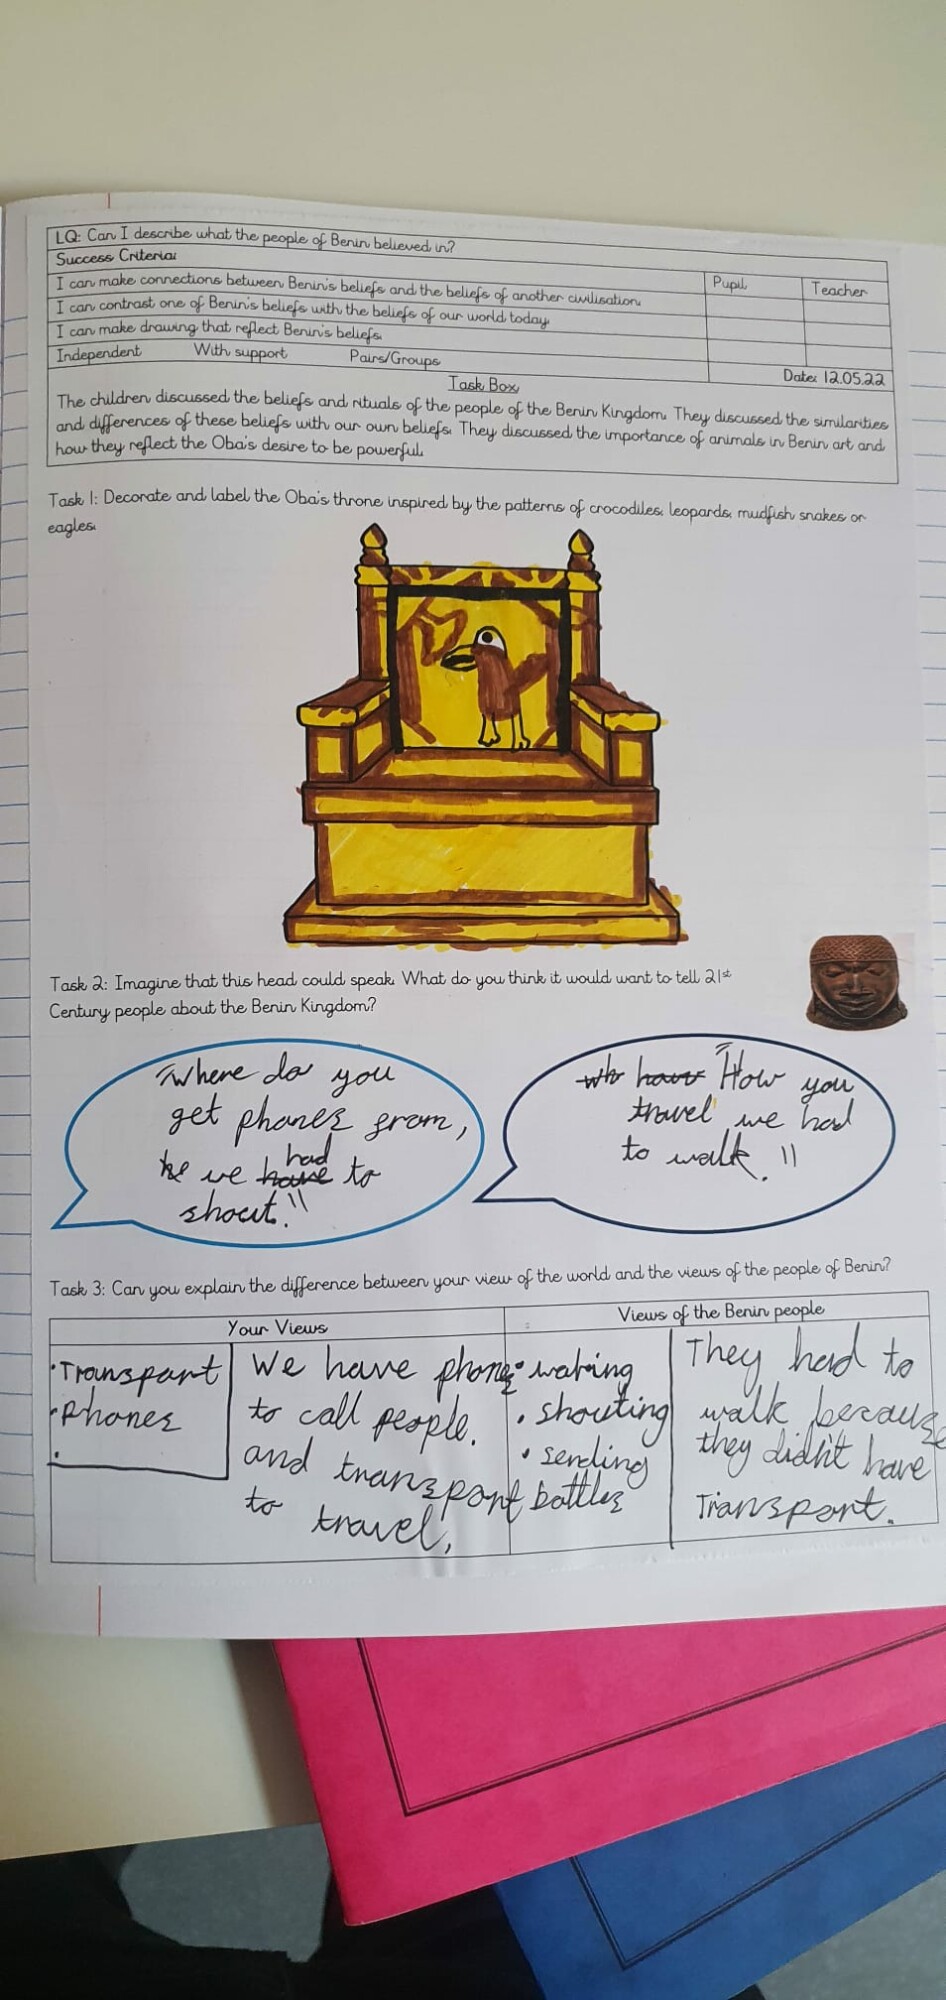 LQ: Can I describe what the people of Benin believed in?
Success Criteria:
Pupil
Teacher
I can make connections between Benin's beliefs and the beliefs of another civilisation.
I can contrast one of Benin's beliefs with the beliefs of our world today.
I can make drawing that reflect Benin's beliefs.
Independent With support Pairs/Groups
Date: 12.05.22
Task Box
The children discussed the beliefs and rituals of the people of the Benin Kingdom. They discussed the similarities
and differences of these beliefs with our own beliefs. They discussed the importance of animals in Benin art and
how they reflect the Oba's desire to be powerful.
Task 1: Decorate and label the Oba's throne inspired by the patterns of crocodiles, leopards, mudfish snakes or
eagles.
Task 2: Imagine that this head could speak. What do you think it would want to tell 21st
Century people about the Benin Kingdom?
"Where do you
get phones from,
we had to
shout!"
"How you
travel we had
to walk."
Task 3: Can you explain the difference between your view of the world and the views of the people of Benin?
Your Views
Views of the Benin people
• Transport
• Phones
•
We have phones
to call people.
and transport
to travel,
• shouting
• sending
bottles
They had to
walk because
they didn't have
Transport.